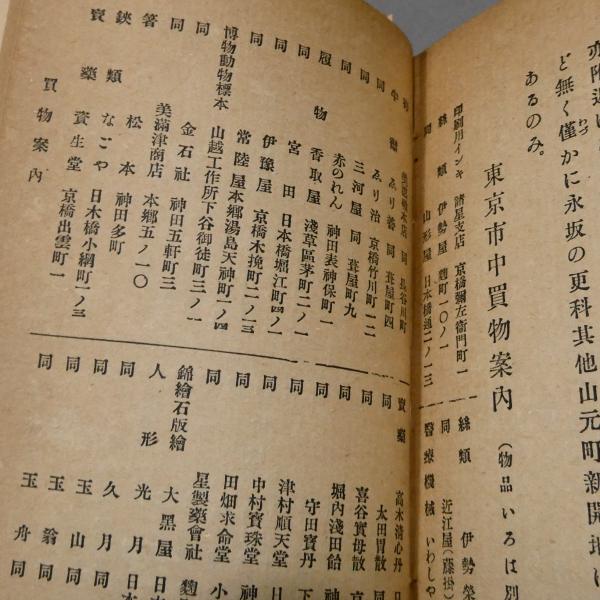 亦附近に
ど無く僅かに永坂の更科其他山元町新開地に
あるのみ。
東京市中買物案内 (物品いろは別
印刷用インキ 諸星支店 京橋彌左衞門町一
絲類 伊勢屋 麴町一〇ノ一
同 山形屋 日本橋通二ノ一三
絲類 伊勢榮
同 近江屋(藤掛)
醫療機械 いわしや
同 長谷川町
同 ゑり善 同 葺屋町四
同 ゑり治 京橋竹川町一二
同 三河屋 同 葺屋町九
同 赤のれん 神田表神保町一
履物 香取屋 淺草區茅町二ノ一
同 宮田 日本橋堀江町四ノ一
同 伊豫屋 京橋木挽町二ノ三
同 常陸屋 本鄕湯島天神町一ノ四
博物動物標本 山越工作所 下谷御徒町三ノ一
同 金石社 神田五軒町三
同 美滿津商店 本鄕五ノ一〇
箸 松本 神田多町
鋏類 なごや 日本橋小網町一ノ三
賣藥 資生堂 京橋出雲町一
賣藥 高木清心丹
同 太田胃散
同 喜谷實母散
同 堀内淺田飴
同 守田寶丹
同 津村順天堂
同 中村寶珠堂
同 田畑求命堂
同 星製藥會社
錦繪石版繪 大黑屋
人形 光月
同 久月
同 玉山
同 玉翁
同 玉舟
買物案内